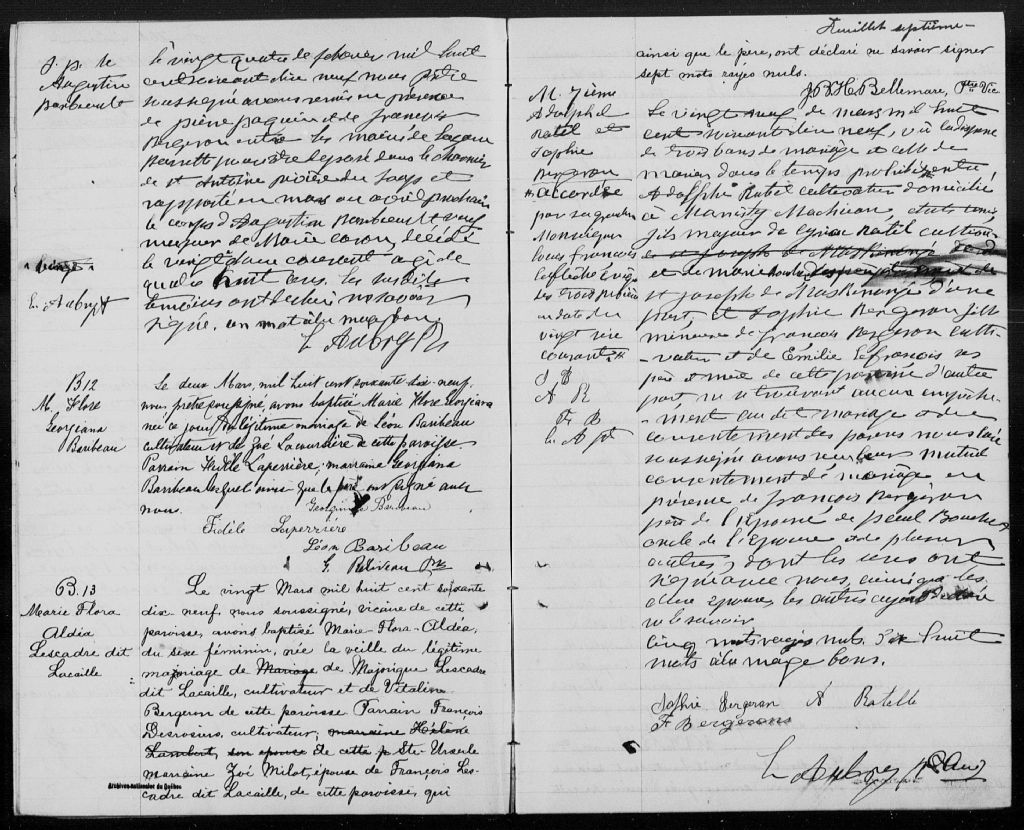 S. p. le
Augustin
Baribeault
le vingt quatre de février mil huit
cent soixante dix neuf nous prêtre
soussigné avons remis en présence
de pierre paquin et de françois
Bergeron entre les mains de
pour être déposé dans le charnier
de St Antoine rivière du Loup et
rapporté en mars ou avril prochain
le corps d'Augustin Baribeault veuf
majeur de Marie caron décédé
le vingt deux courant agé de
quatre vingt ans. les susdits
témoins ont déclaré ne savoir
signer. un mot à la marge bon.
L. Aubry Ptr
vingt
L. Aubry Pt
B 12
M. Flore
Georgiana
Baribeau
Le deux Mars, mil huit cent soixante dix-neuf
nous prêtre soussigné, avons baptisé Marie Flore Georgiana
née ce jour du légitime mariage de Léon Baribeau
cultivateur et de Zoé Lacoursière de cette paroisse.
Parrain Fidèle Laperrière, marraine Georgiana
Baribeau lesquels ainsi que le père ont signé avec
nous.
Georgina Baribeau
Fidèle Laperrière
Léon Baribeau
G. Béliveau Ptr
B. 13
Marie Flora
Aldéa
Lescadre dit
Lacaille
Le vingt Mars mil huit cent soixante
dix neuf, nous soussigné, vicaire de cette
paroisse, avons baptisé Marie-Flora-Aldéa,
du sexe féminin, née la veille du légitime
mariage de Mariage de Majorique Lescadre
dit Lacaille, cultivateur et de Vitaline
Bergeron de cette paroisse Parrain François
Desrosiers, cultivateur, marraine Hélène
Lambert, son épouse de cette p Ste Ursule
marraine Zoé Milot, épouse de François Les-
cadre dit Lacaille, de cette paroisse, qui
Archives nationales du Québec
Feuillet septième
ainsi que le père, ont déclaré ne savoir signer
sept mots rayés nuls.
Bellemare, Ptre Vic
M. 7ième
Adolphe
Ratel et
Sophie
Bergeron
accordée
par sa grandeur
Monseigneur
Louis François
Laflèche évêque
les trois rivières
en date du
vingt six
courant
S B
A R
F. B
L. A Pt
Le vingt neuf de mars mil huit
cent soixante dix neuf, vu la dispense
de trois bans de mariage et celle de
marier dans le temps prohibé entre
Adolphe Ratel cultivateur domicilié
à Manisty Machican, états unis
fils majeur de Cyriac Ratel cultiva-
de st joseph de Maskinongé
et de marie
st joseph de Maskinongé d'une
part, et Sophie Bergeron fille
mineure de françois Bergeron culti-
vateur et de Emilie Lefrançois ses
père et mère de cette paroisse d'autre
part ne se trouvant aucun empêche-
ment au dit mariage et du
consentement des parens nous ptre
soussigné avons reçu leur mutuel
consentement de mariage en
présence de françois Bergeron
père de l'épouse de paul Boucher
oncle de l'épouse et de plusieurs
autres, dont les uns ont
signé avec nous, ainsi que les
dits époux, les autres ayant déclaré
ne le savoir
Cinq mots rayés nuls. huit
mots à la marge bons.
Sophie Bergeron A Ratelle
F Bergeron
L. Aubry Ptr Curé